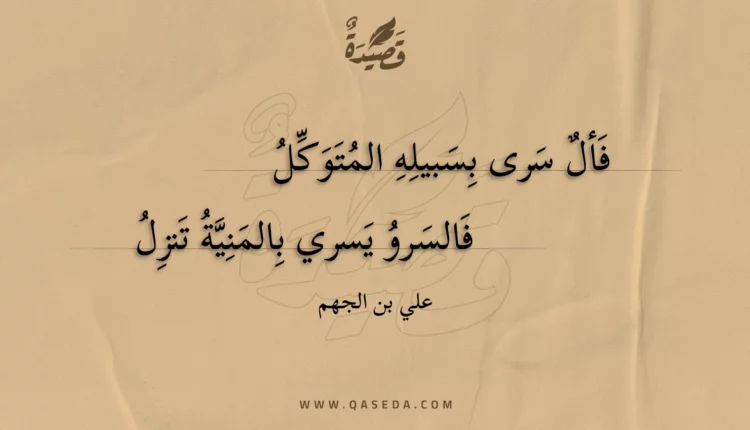 قَصِيدَةٌ
فَألٌ سَرى بِسَبيلِهِ المُتَوَكِّلُ
فَالسَروُ يَسري بِالمَنِيَّةُ تَنزِلُ
علي بن الجهم
WWW.QASEDA.COM